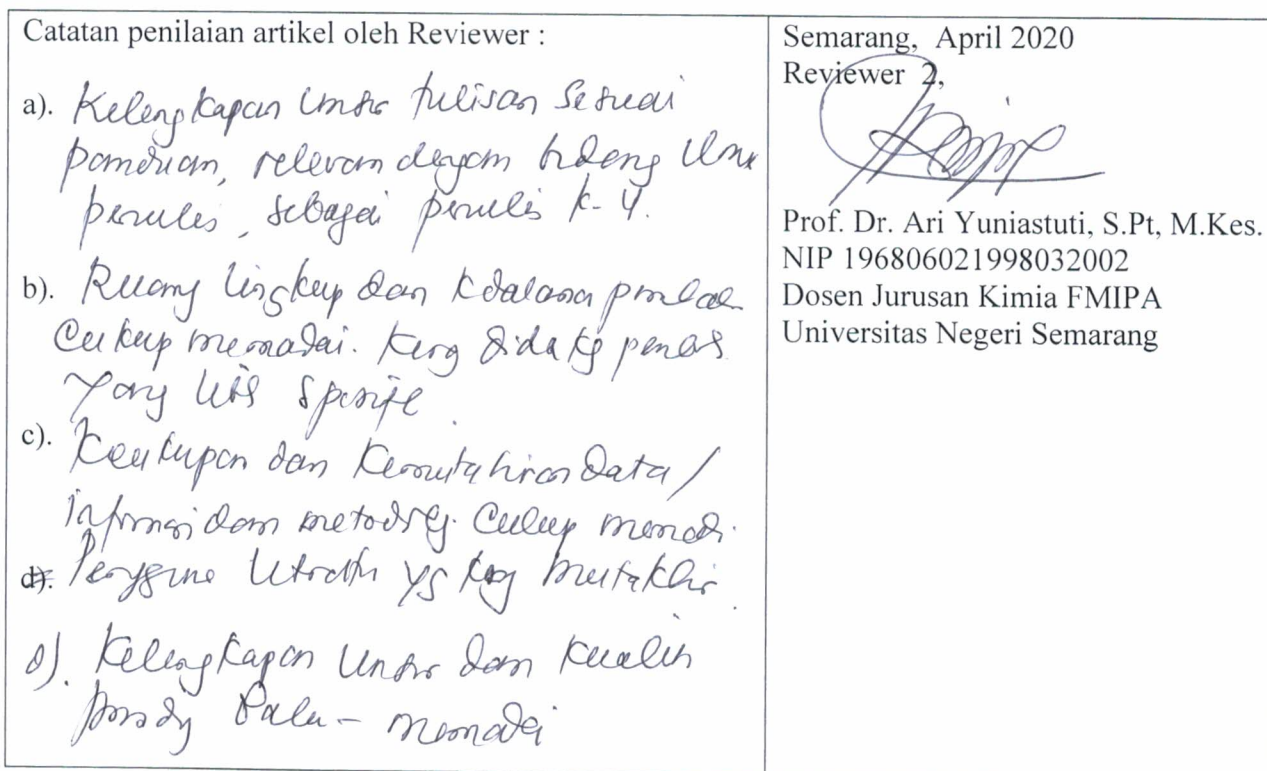 Catatan penilaian artikel oleh Reviewer :
a). Kelengkapan unsur tulisan sesuai
panduan, relevan dengan bidang ilmu
penulis, sebagai penulis k-4.
b). Ruang lingkup dan
Cukup memadai.
yang
c). Kecukupan dan Kemutahiran Data/
informasi dan metodologi. Cukup memadai.
d). yg krg mutakhir.
d). Kelengkapan Unsur dan Kualitas
memadai
Semarang, April 2020
Reviewer 2,
Prof. Dr. Ari Yuniastuti, S.Pt, M.Kes.
NIP 196806021998032002
Dosen Jurusan Kimia FMIPA
Universitas Negeri Semarang